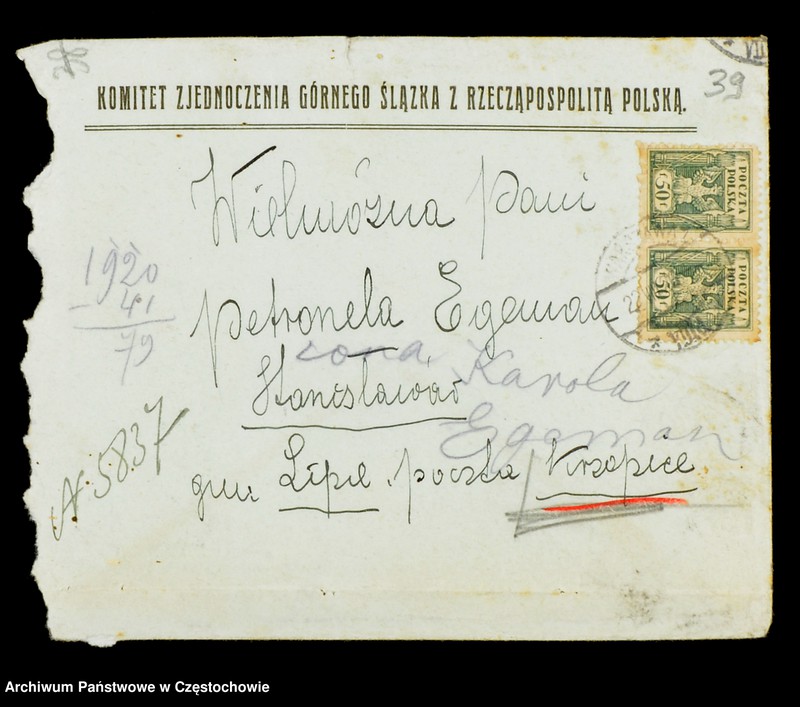 39
KOMITET ZJEDNOCZENIA GÓRNEGO ŚLĄZKA Z RZECZĄPOSPOLITĄ POLSKĄ.
POCZTA POLSKA
50
POCZTA POLSKA
50
Wielmożna Pani
1920
- 41
79
Petronela Egeman
żona Karola
Egeman
Stanisławów
N 5837
gm. Lipie poczta Krzepice
Archiwum Państwowe w Częstochowie